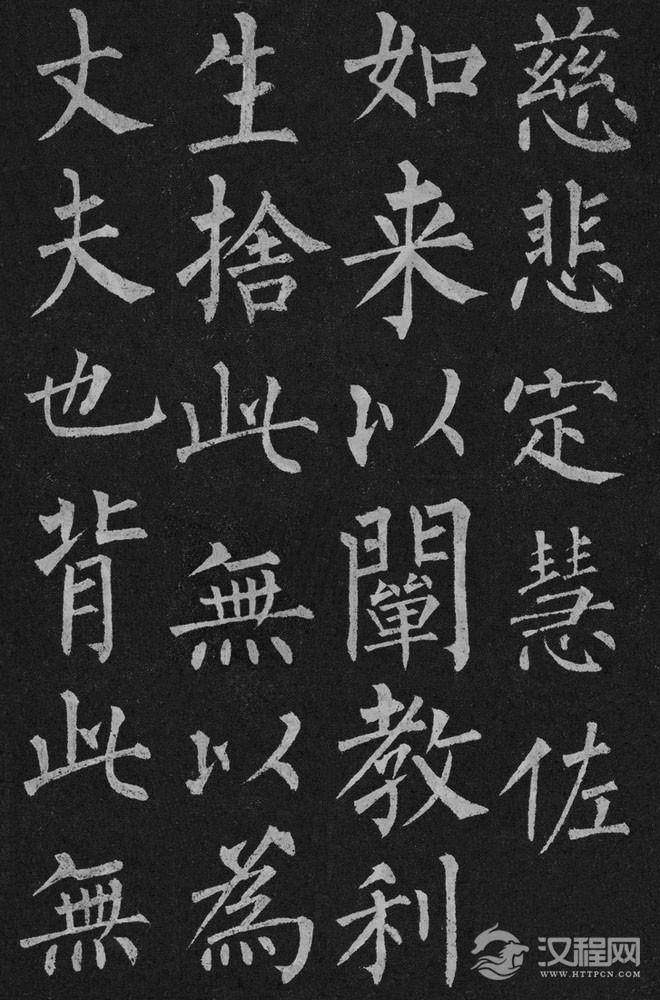 慈悲定慧佐
如来以闡教利
生捨此無以為
丈夫也背此無
汉程网
WWW.HTTPCN.COM